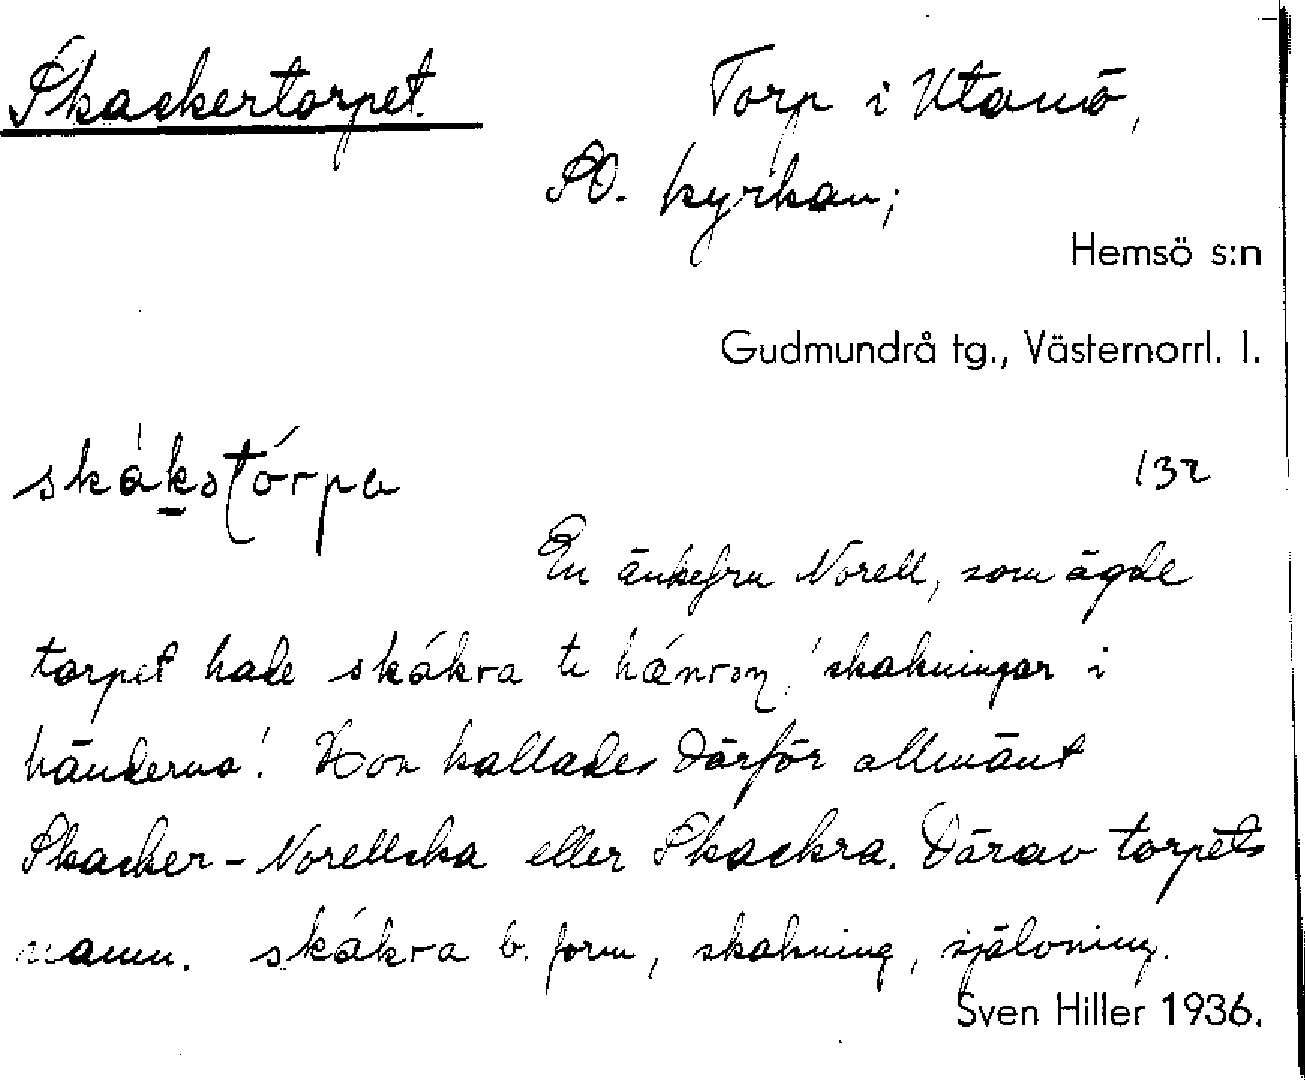 Skackertorpet. Torp i Utanö,
SO. kyrkan;
Hemsö s:n
Gudmundrå tg., Västernorrl. l.
skákətórpa 132
En änkefru Norell, som ägde
torpet hade skákra te hánrən, 'skakningar i
händerna'. Hon kallades därför allmänt
Skacker-Norellska eller Skackra. Därav torpets
namn. skákra b. form, skakning, självning.
Sven Hiller 1936.